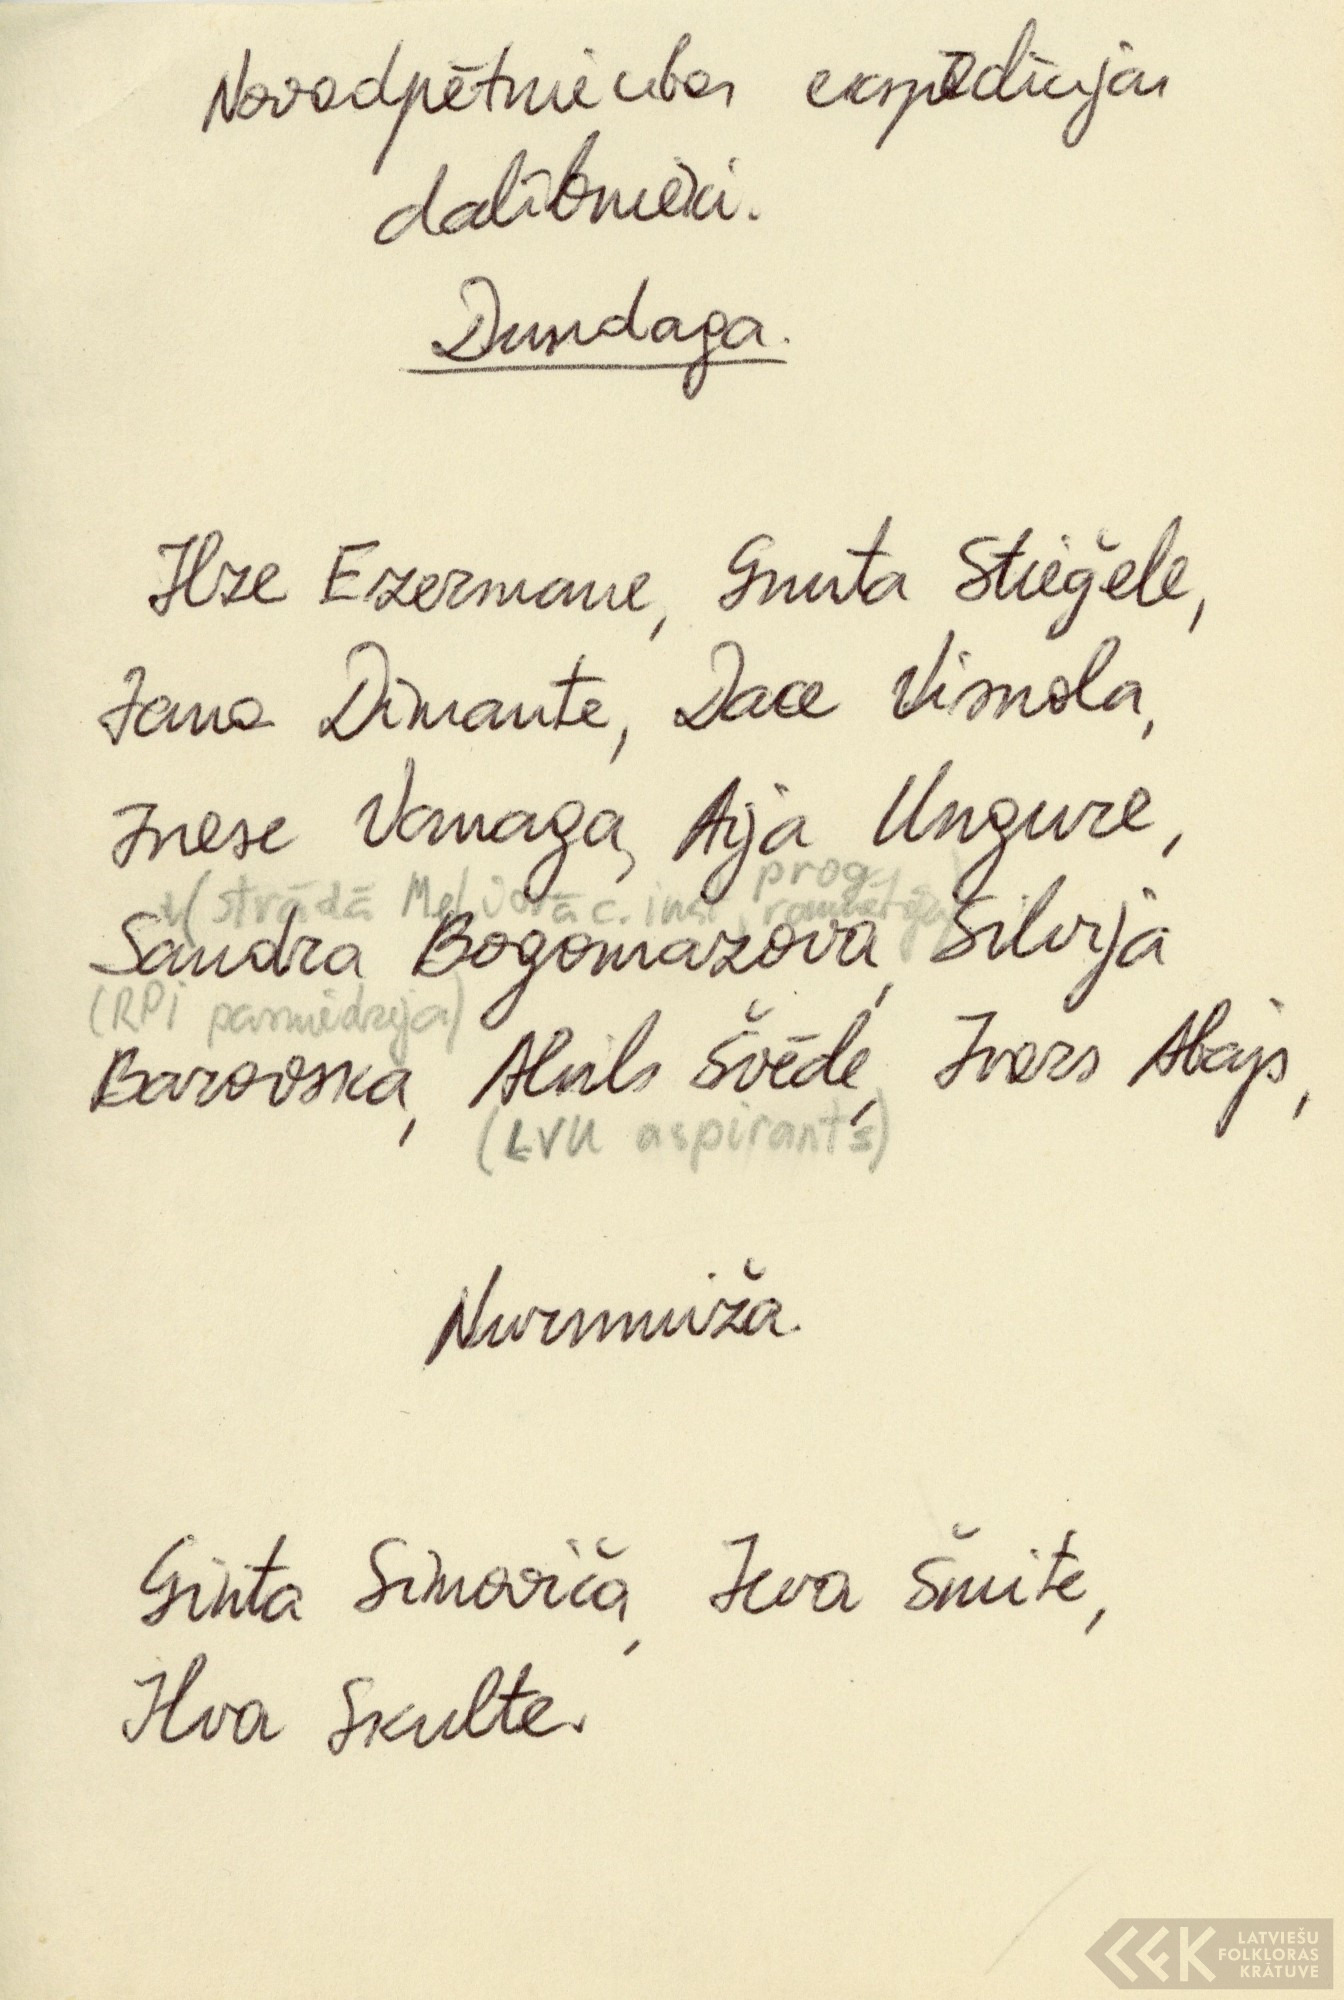 Novadpētniecības ekspedīcijas
dalībnieki.
Dundaga.
Ilze Ezermane, Gunta Stieģele,
Jana Dimante, Dace Vismola,
Inese Vanaga, Aija Ungure,
(strādā Meliorāc. inst. prog
rammētāja)
Sandra Bogomazova, Silvija
(RPI pasniedzēja)
Barovska, Alvils Švēde, Ivars Abajs,
(LVU aspirants)
Nurmuiža.
Ginta Simoviča, Ieva Šmite,
Ilva Skulte.
LATVIEŠU
FOLKLORAS
KRĀTUVE